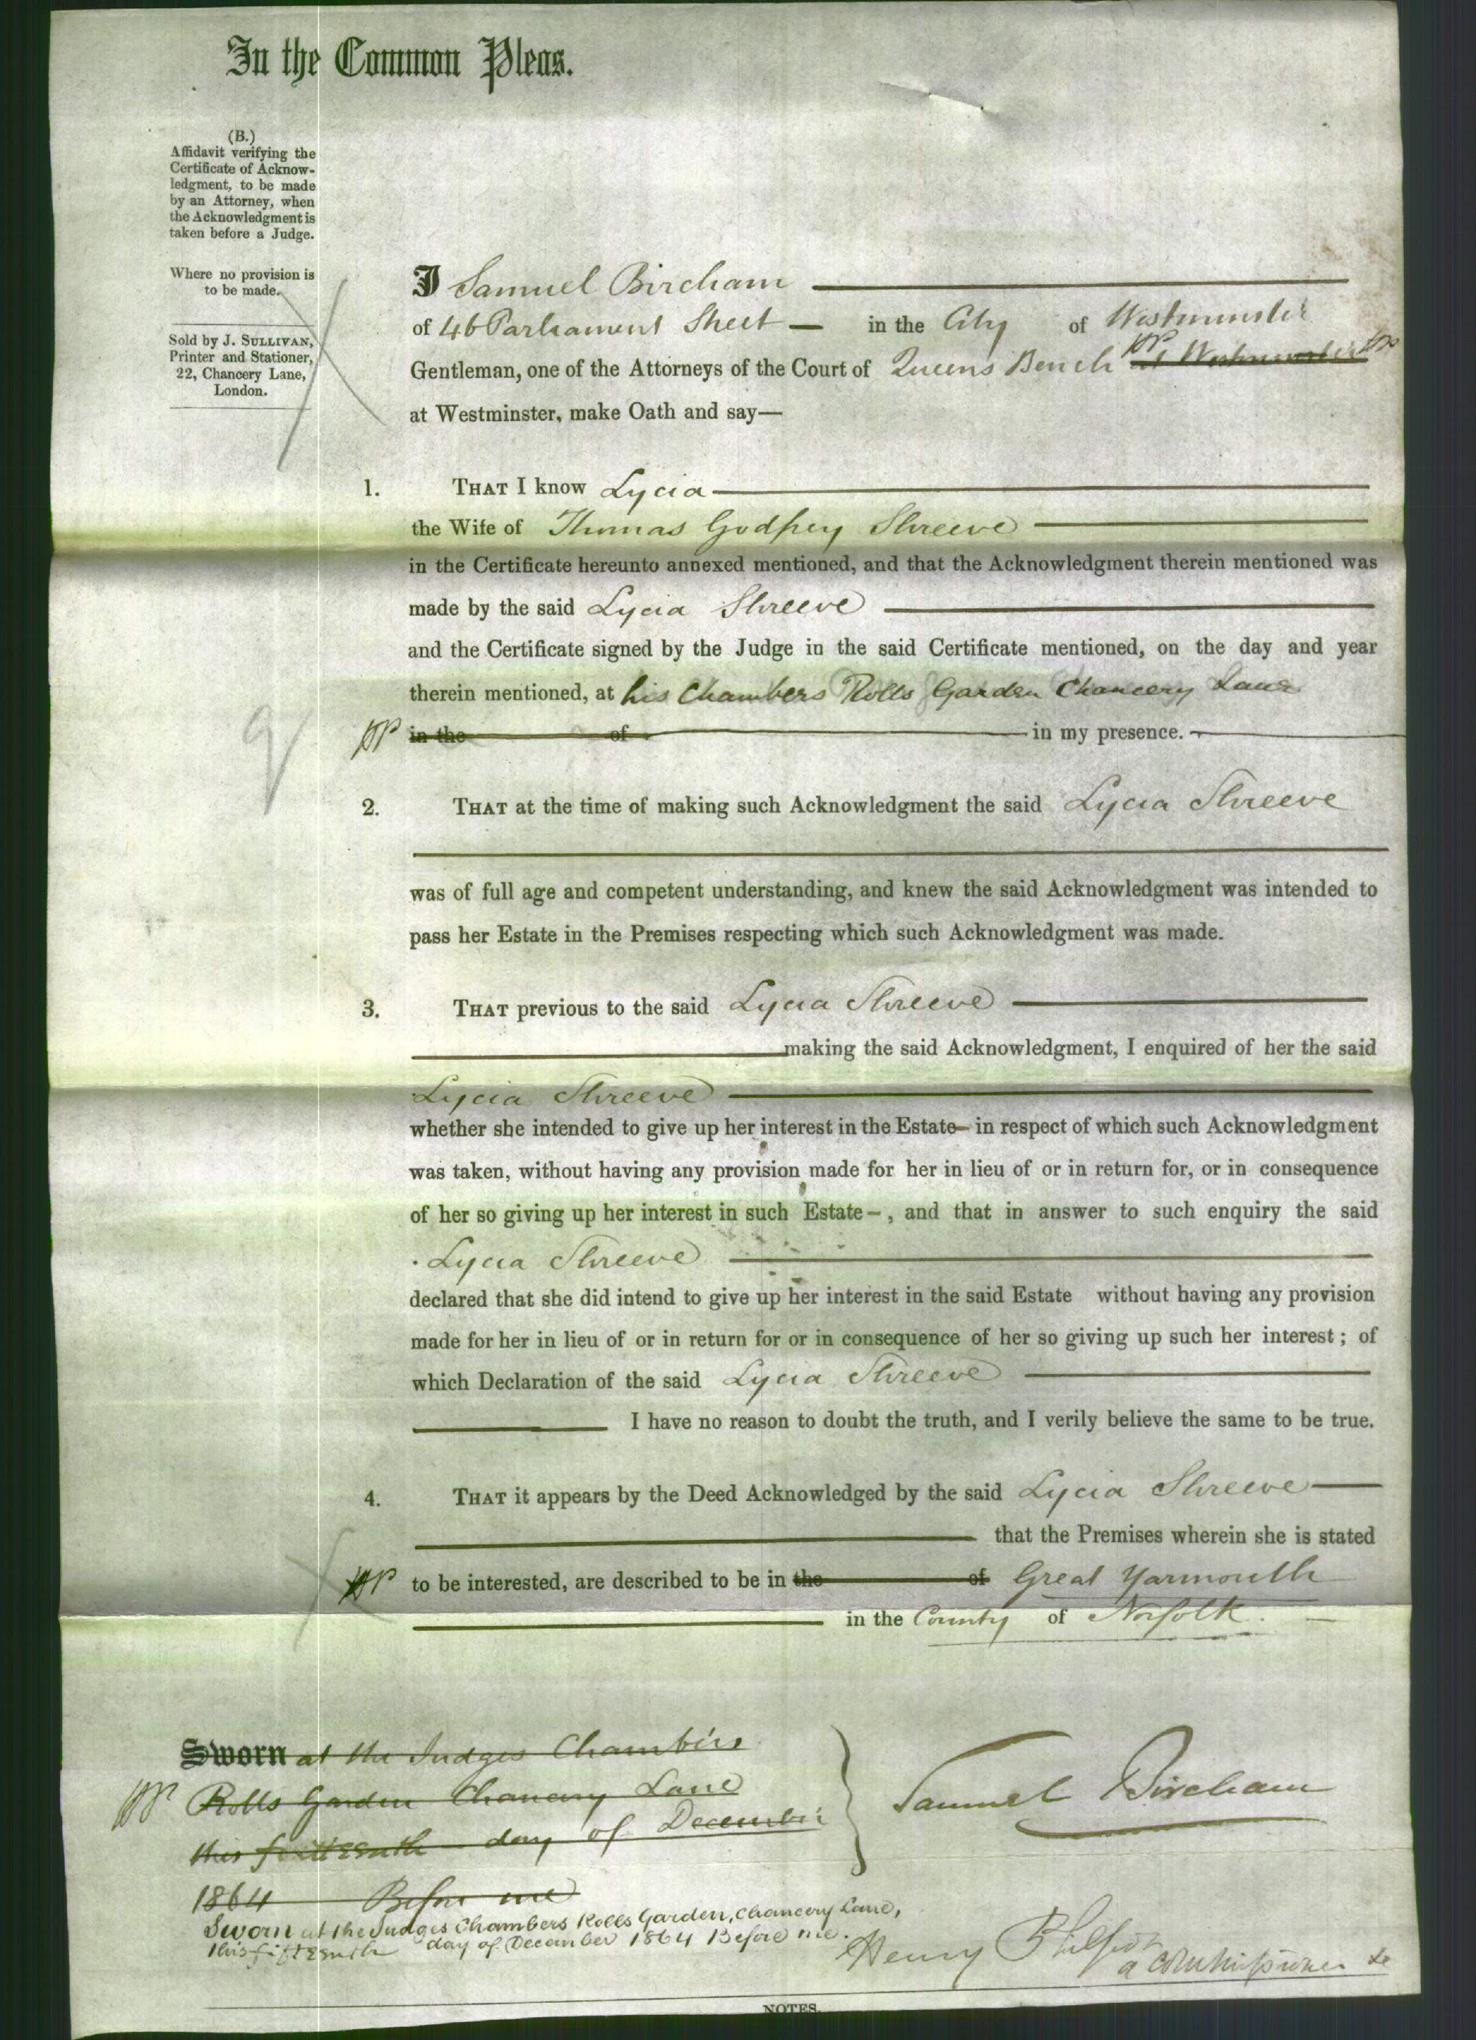 In the Common Pleas.
(B.)
Affidavit verifying the
Certificate of Acknow-
ledgment, to be made
by an Attorney, when
the Acknowledgment is
taken before a Judge.
Where no provision is
to be made.
Sold by J. SULLIVAN,
Printer and Stationer,
22, Chancery Lane,
London.
I Samuel Bircham
of 46 Parliament Street — in the City of Westminster
Gentleman, one of the Attorneys of the Court of Queens Bench at Westminster
at Westminster, make Oath and say—
1. THAT I know Lycia
the Wife of Thomas Godfrey Shreeve
in the Certificate hereunto annexed mentioned, and that the Acknowledgment therein mentioned was
made by the said Lycia Shreeve
and the Certificate signed by the Judge in the said Certificate mentioned, on the day and year
therein mentioned, at his Chambers Rolls Garden Chancery Lane
in the of in my presence.
2. THAT at the time of making such Acknowledgment the said Lycia Shreeve
was of full age and competent understanding, and knew the said Acknowledgment was intended to
pass her Estate in the Premises respecting which such Acknowledgment was made.
3. THAT previous to the said Lycia Shreeve
making the said Acknowledgment, I enquired of her the said
Lycia Shreeve
whether she intended to give up her interest in the Estate— in respect of which such Acknowledgment
was taken, without having any provision made for her in lieu of or in return for, or in consequence
of her so giving up her interest in such Estate—, and that in answer to such enquiry the said
Lycia Shreeve
declared that she did intend to give up her interest in the said Estate without having any provision
made for her in lieu of or in return for or in consequence of her so giving up such her interest; of
which Declaration of the said Lycia Shreeve
I have no reason to doubt the truth, and I verily believe the same to be true.
4. THAT it appears by the Deed Acknowledged by the said Lycia Shreeve
that the Premises wherein she is stated
to be interested, are described to be in the of Great Yarmouth
in the County of Norfolk.
Sworn at the Judges Chambers
Rolls Garden Chancery Lane
this fifteenth day of December
1864 Before me
Samuel Bircham
Sworn at the Judges Chambers Rolls Garden, Chancery Lane,
this fifteenth day of December 1864 Before me.
Henry
a Commissioner &c
NOTES.